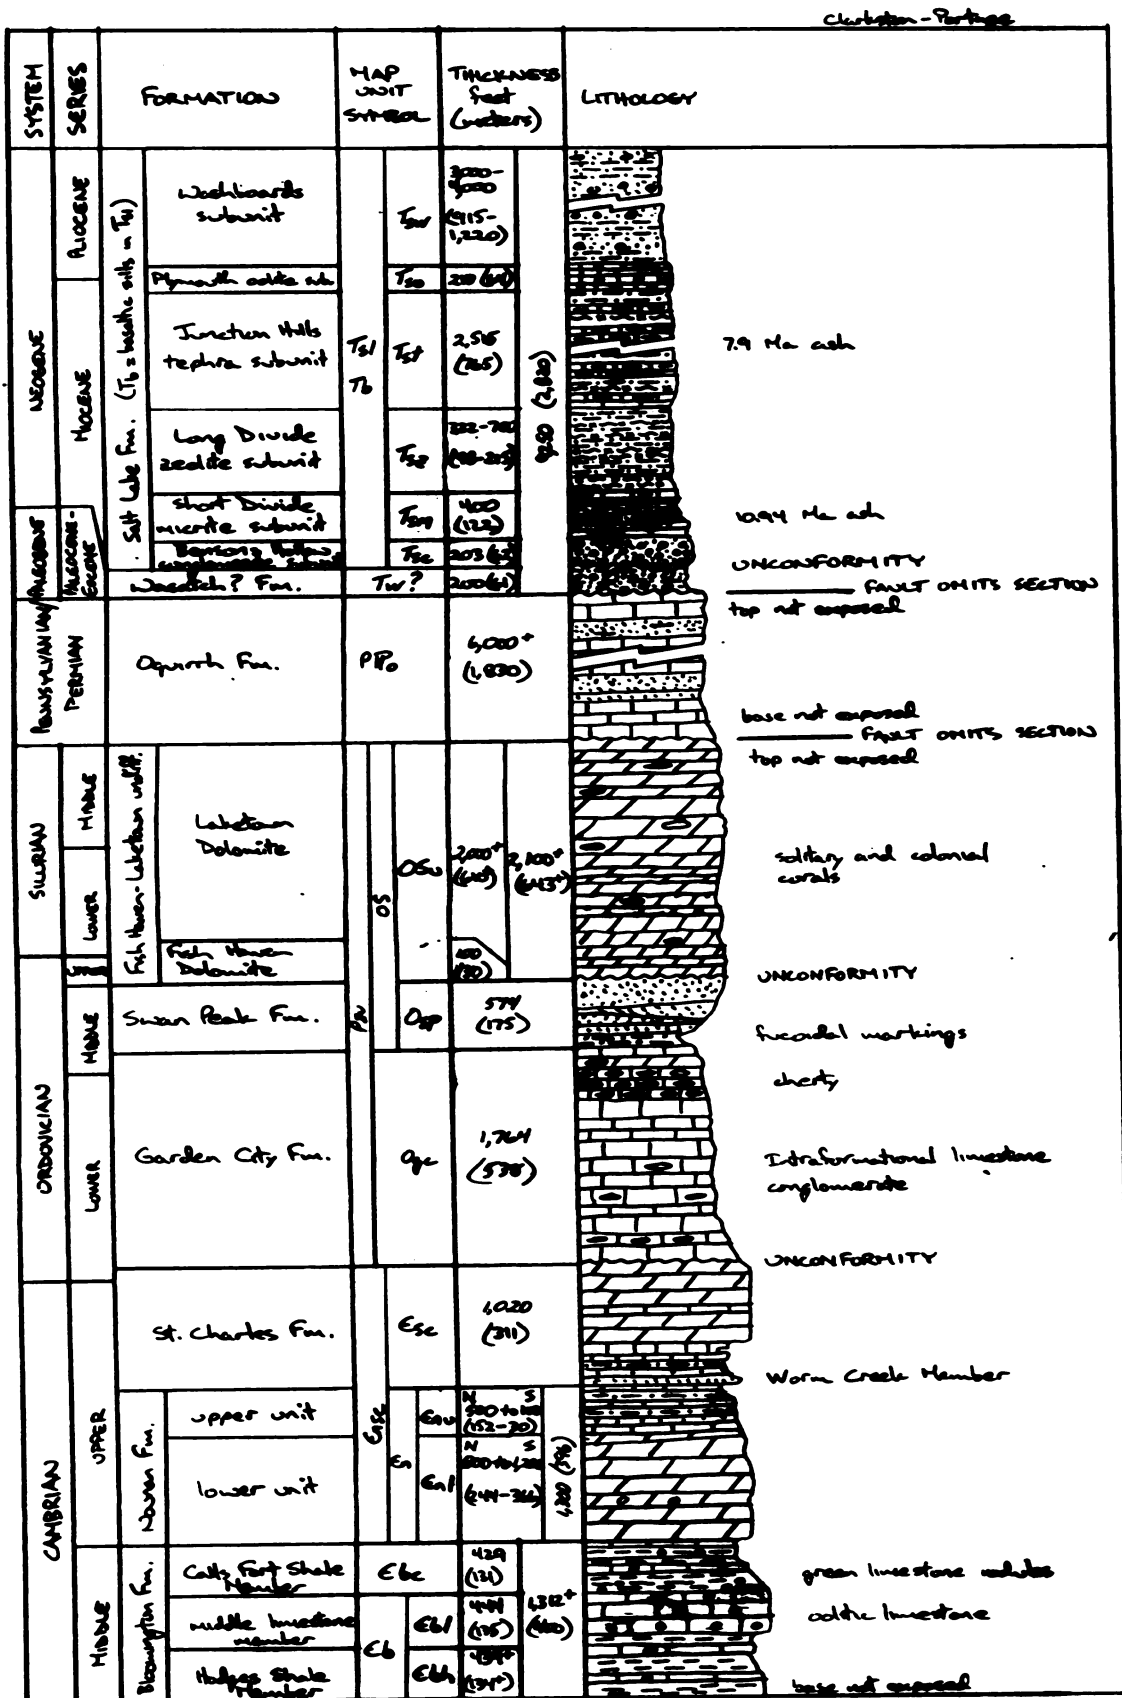 Clarkston - Portage
SYSTEM
SERIES
FORMATION
MAP
UNIT
SYMBOL
THICKNESS
feet
(meters)
LITHOLOGY
NEOGENE
PLIOCENE
MIOCENE
Salt Lake Fm. (Tb = basaltic sills in Tsl)
Washboards
subunit
Tsl
Tb
Tsw
3,000-
4,000
(915-
1,220)
9,250 (2,820)
Plymouth oolite sub.
Tso
Junction Hills
tephra subunit
Tst
2,515
(765)
7.9 Ma ash
Long Divide
zeolite subunit
Tsz
Short Divide
micrite subunit
Tsm
400
(122)
10.94 Ma ash
Bensons Hollow
conglomerate
Tsc
203 (62)
UNCONFORMITY
PALEOGENE
Wasatch? Fm.
Tw?
200 (61)
FAULT OMITS SECTION
top not exposed
PENNSYLVANIAN/
PERMIAN
Oquirrh Fm.
PIPo
6,000+
(1,830)
base not exposed
FAULT OMITS SECTION
top not exposed
SILURIAN
MIDDLE
LOWER
Fish Haven-Laketown undiff.
Laketown
Dolomite
OS
OSu
2,000+
(610+)
2,100+
(643+)
solitary and colonial
corals
ORDOVICIAN
UPPER
Fish Haven
Dolomite
100
(30)
UNCONFORMITY
MIDDLE
Swan Peak Fm.
Osp
574
(175)
fucoidal markings
cherty
LOWER
Garden City Fm.
Ogc
1,764
(538)
Intraformational limestone
conglomerate
UNCONFORMITY
CAMBRIAN
UPPER
St. Charles Fm.
Єsc
1,020
(311)
Worm Creek Member
Nounan Fm.
upper unit
Єn
Єnu
N S
500 to 100
(152-30)
lower unit
Єnl
N S
800 to 1,200
(244-366)
1,300 (396)
MIDDLE
Bloomington Fm.
Calls Fort Shale
Member
Єbc
429
(131)
1,312+
(400)
green limestone nodules
middle limestone
member
Єb
Єbl
444
(135)
oolitic limestone
Hodges Shale
Member
Єbh
439+
(134+)
base not exposed